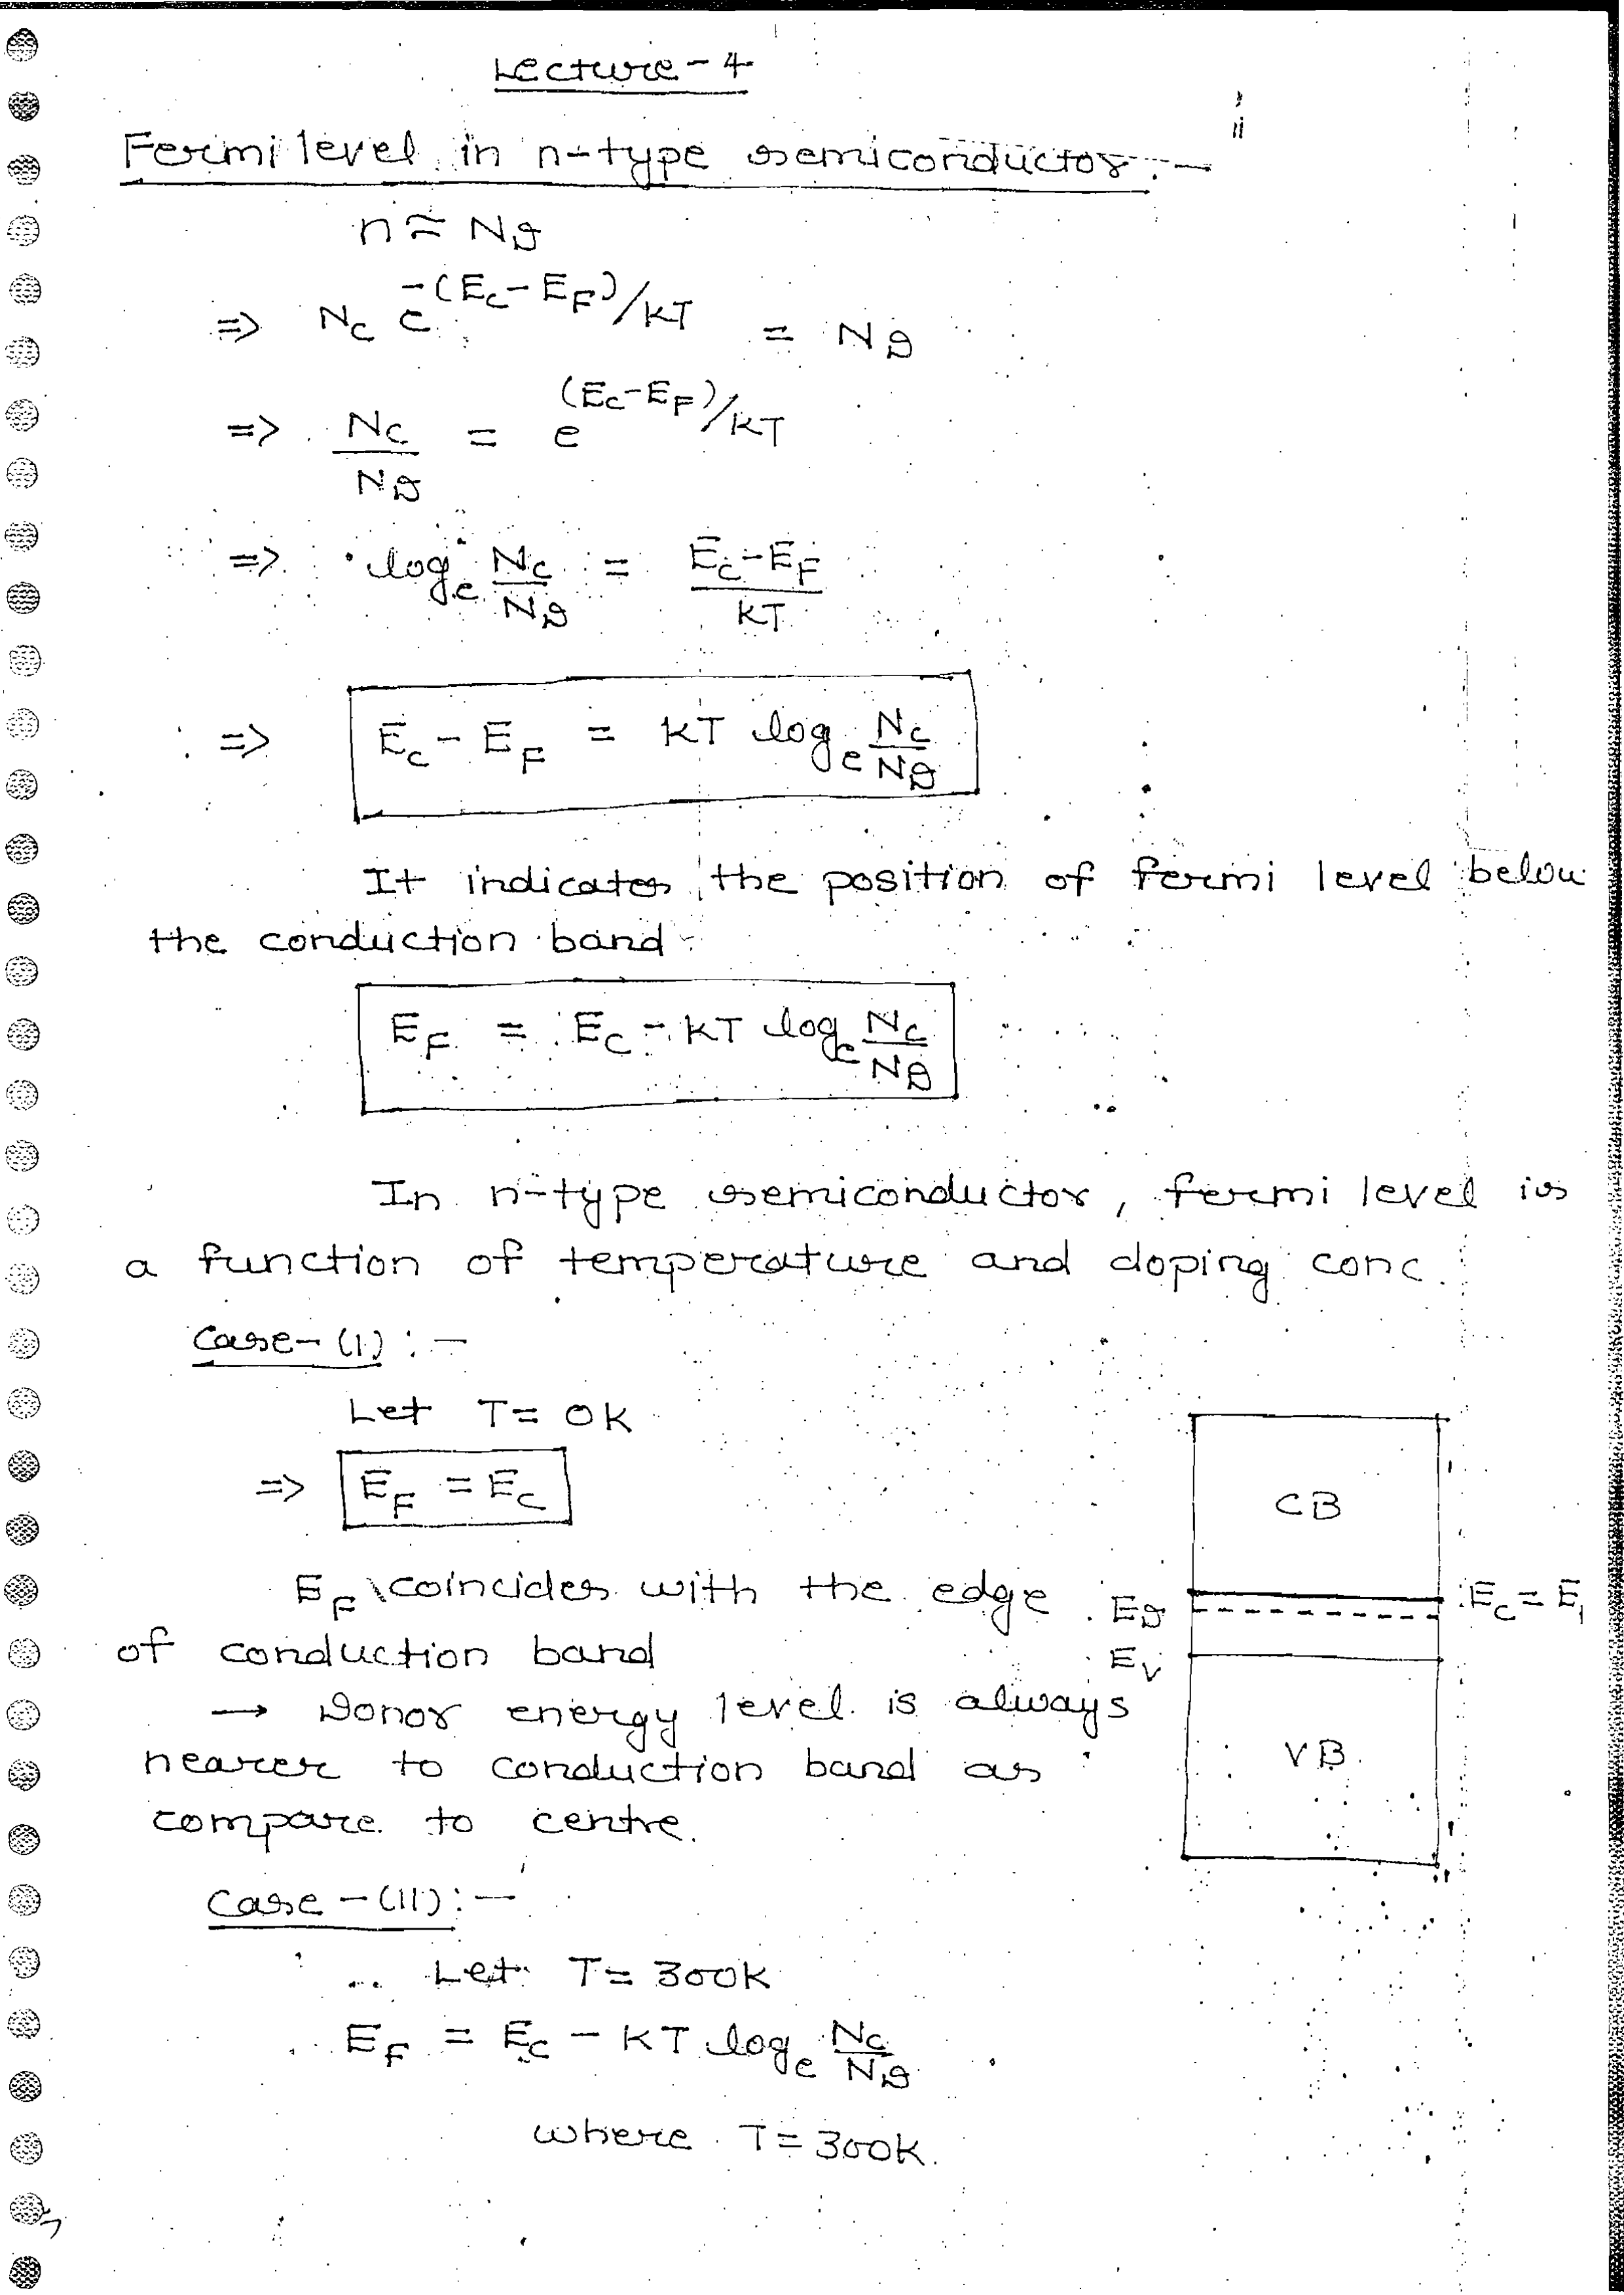 Lecture-4
Fermi level in n-type semiconductor:-
n ≈ N_D
=> N_C e^{-(E_C-E_F)/KT} = N_D
=> N_C/N_D = e^{(E_C-E_F)/KT}
=> log_e N_C/N_D = (E_C-E_F)/KT
=> E_C - E_F = KT log_e N_C/N_D
It indicates the position of fermi level below
the conduction band.
E_F = E_C - KT log_e N_C/N_D
In n-type semiconductor, fermi level is
a function of temperature and doping conc.
Case-(I):-
Let T = 0K
=> E_F = E_C
E_F coincides with the edge
of conduction band
→ Donor energy level is always
nearer to conduction band as
compare to centre.
CB
E_D
E_C = E
E_V
VB
Case-(II):-
Let T = 300K
E_F = E_C - KT log_e N_C/N_D
where T = 300K.